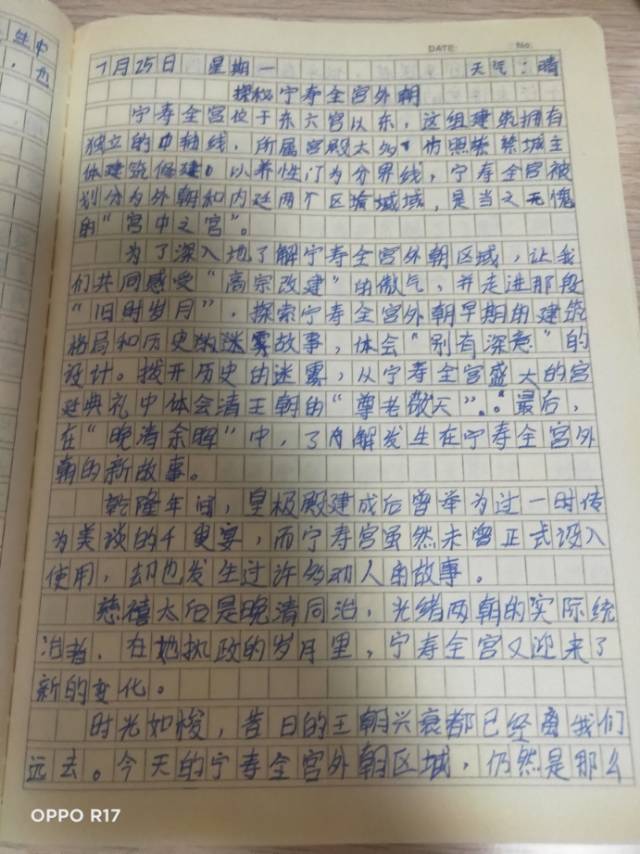 DATE No.
7月25日 星期一 天气：晴
探秘宁寿全宫外朝
宁寿全宫位于东六宫以东，这组建筑拥有
独立的中轴线，所属宫殿太多仿照紫禁城主
体建筑修建。以养性门为分界线，宁寿全宫被
划分为外朝和内廷两个区域，是当之无愧
的“宫中之宫”。
为了深入地了解宁寿全宫外朝区域，让我
们共同感受“高宗改建”的傲气，并走进那段
“旧时岁月”，探索宁寿全宫外朝早期的建筑
格局和历史故事，体会“别有深意”的
设计。拨开历史的迷雾，从宁寿全宫盛大的宫
廷典礼中体会清王朝的“尊老敬天”。最后，
在“晚清余晖”中，了解发生在宁寿全宫外
朝的新故事。
乾隆年间，皇极殿建成后曾举为过一时传
为美谈的千叟宴，而宁寿宫虽然未曾正式投入
使用，却也发生过许多动人的故事。
慈禧太后是晚清同治，光绪两朝的实际统
治者，在她执政的岁月里，宁寿全宫又迎来了
新的变化。
时光如梭，昔日的王朝兴衰都已经离我们
远去。今天的宁寿全宫外朝区域，仍然是那么
OPPO R17